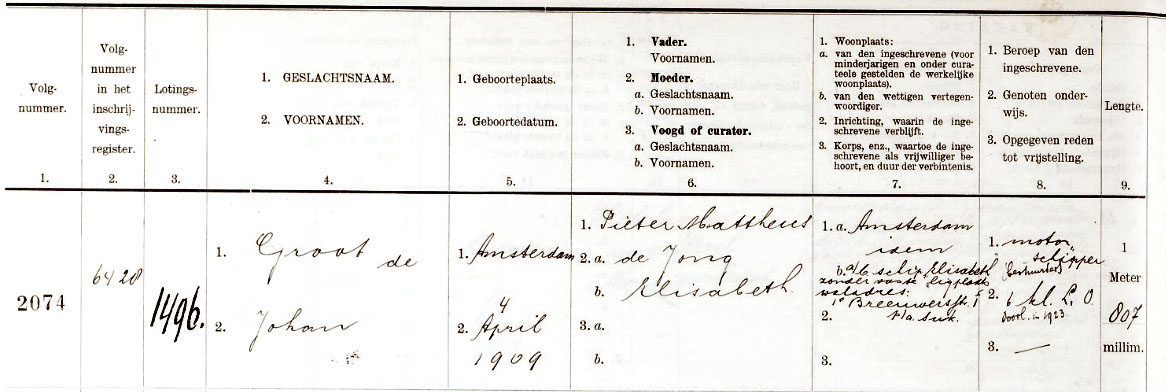 Volg-
nummer.
1.
Volg-
nummer
in het
inschrij-
vings-
register.
2.
Lotings-
nummer.
3.
1. GESLACHTSNAAM.
2. VOORNAMEN.
4.
1. Geboorteplaats.
2. Geboortedatum.
5.
1. Vader.
Voornamen.
2. Moeder.
a. Geslachtsnaam.
b. Voornamen.
3. Voogd of curator.
a. Geslachtsnaam.
b. Voornamen.
6.
1. Woonplaats:
a. van den ingeschrevene (voor
minderjarigen en onder cura-
teele gestelden de werkelijke
woonplaats).
b. van den wettigen vertegen-
woordiger.
2. Inrichting, waarin de inge-
schrevene verblijft.
3. Korps, enz., waartoe de inge-
schrevene als vrijwilliger be-
hoort, en duur der verbintenis.
7.
1. Beroep van den
ingeschrevene.
2. Genoten onder-
wijs.
3. Opgegeven reden
tot vrijstelling.
8.
Lengte.
9.
2074
6420
1496.
1. Groot de
2. Johan
1. Amsterdam
2. 4
April
1909
1. Pieter Mattheus
2. a. de Jong
b. Elisabeth
3. a.
b.
1. a. Amsterdam
idem
b. a/b schip Elisabeth
zonder vaste ligplaats
waladres:
1e Breeuwersstr. 1
2.
3.
1. motor
schipper
2. 6 kl. L. O.
doorl. in 1923
3. —
1
Meter
807
millim.